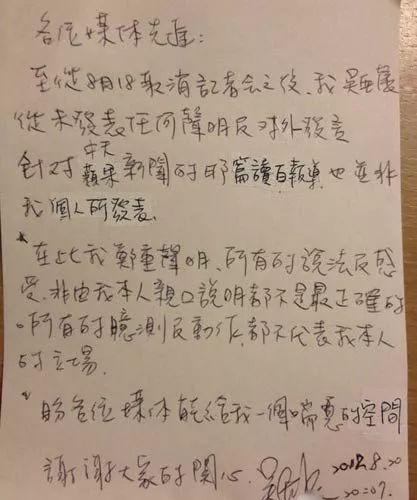 各位媒体先進:
至從8月18取消記者会之後,我吳亞馨
從未發表任何聲明及对外發言
針对中天蘋果新聞的那篇讀百報導也並非
我個人所發表.
*在此我鄭重聲明,所有的說法及感
受,非由我本人親口說明都不是最正確的
。所有的臆測及動作都不代表我本人
的立場.
*盼各位媒体能給我一個喘息的空間
謝謝大家的関心.
2012.8.20
20:07.